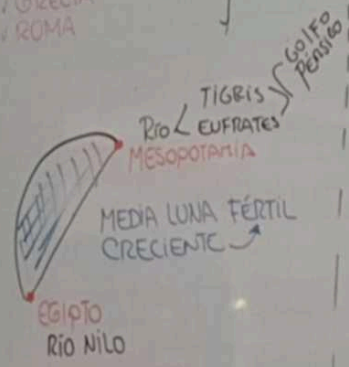 ROMA
GOLFO
PÉRSICO
TIGRIS
RÍO < EUFRATES
MESOPOTAMIA
MEDIA LUNA FÉRTIL
CRECIENTE
EGIPTO
RÍO NILO